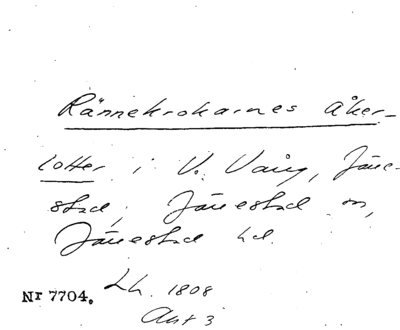 Rännekrokarnes åker-
lotter i V. Vång, Järe-
stad, Järestad sn,
Järestad hd.
Nr 7704. Lh. 1808
Akt 3